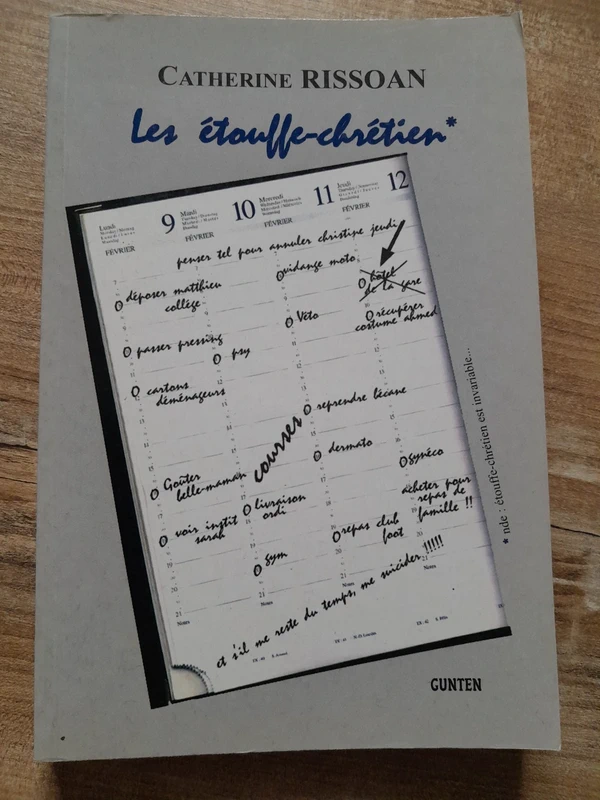 CATHERINE RISSOAN
Les étouffe-chrétien*
Lundi
9
Mardi
10
Mercredi
11
Jeudi
12
FÉVRIER
FÉVRIER
FÉVRIER
FÉVRIER
penser tel pour annuler christine jeudi
déposer matthieu
collège
vidange moto
hôtel
de la gare
Véto
récupérer
costume ahmed
passer pressing
psy
cartons
déménageurs
reprendre bécane
courses
dermato
gynéco
Goûter
belle-maman
acheter pour
repas de
famille !!
livraison
ordi
voir instit
sarah
repas club
foot
gym
Notes
Notes
Notes
Notes
et s'il me reste du temps, me suicider !!!!!
* nde : étouffe-chrétien est invariable...
GUNTEN